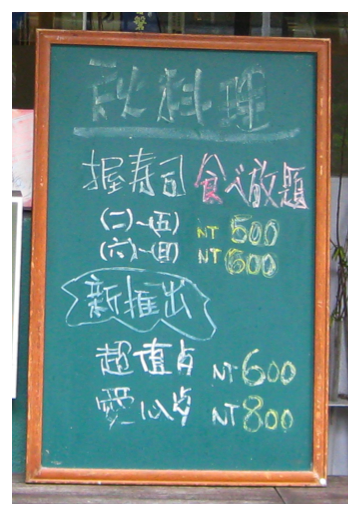 秋料理
握寿司食べ放題
(二)~(五) NT 500
(六)~(日) NT 600
新推出
超值点 NT 600
愛心点 NT 800